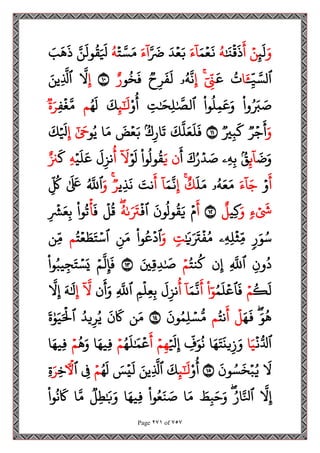 وَلَئِنۡ أَذَقۡنَٰهُ نَعۡمَآءَ بَعۡدَ ضَرَّآءَ مَسَّتۡهُ لَيَقُولَنَّ ذَهَبَ
ٱلسَّيِّـَٔاتُ عَنِّيٓۚ إِنَّهُۥ لَفَرِحٞ فَخُورٌ ۝١٠ إِلَّا ٱلَّذِينَ
صَبَرُواْ وَعَمِلُواْ ٱلصَّٰلِحَٰتِ أُوْلَٰٓئِكَ لَهُم مَّغۡفِرَةٞ
وَأَجۡرٞ كَبِيرٞ ۝١١ فَلَعَلَّكَ تَارِكُۢ بَعۡضَ مَا يُوحَىٰٓ إِلَيۡكَ
وَضَآئِقُۢ بِهِۦ صَدۡرُكَ أَن يَقُولُواْ لَوۡلَآ أُنزِلَ عَلَيۡهِ كَنزٌ
أَوۡ جَآءَ مَعَهُۥ مَلَكٌۚ إِنَّمَآ أَنتَ نَذِيرٞۚ وَٱللَّهُ عَلَىٰ كُلِّ
شَيۡءٖ وَكِيلٌ ۝١٢ أَمۡ يَقُولُونَ ٱفۡتَرَىٰهُۖ قُلۡ فَأۡتُواْ بِعَشۡرِ
سُوَرٖ مِّثۡلِهِۦ مُفۡتَرَيَٰتٖ وَٱدۡعُواْ مَنِ ٱسۡتَطَعۡتُم مِّن
دُونِ ٱللَّهِ إِن كُنتُمۡ صَٰدِقِينَ ۝١٣ فَإِلَّمۡ يَسۡتَجِيبُواْ
لَكُمۡ فَٱعۡلَمُوٓاْ أَنَّمَآ أُنزِلَ بِعِلۡمِ ٱللَّهِ وَأَن لَّآ إِلَٰهَ إِلَّا
هُوَۖ فَهَلۡ أَنتُم مُّسۡلِمُونَ ۝١٤ مَن كَانَ يُرِيدُ ٱلۡحَيَوٰةَ
ٱلدُّنۡيَا وَزِينَتَهَا نُوَفِّ إِلَيۡهِمۡ أَعۡمَٰلَهُمۡ فِيهَا وَهُمۡ فِيهَا
لَا يُبۡخَسُونَ ۝١٥ أُوْلَٰٓئِكَ ٱلَّذِينَ لَيۡسَ لَهُمۡ فِي ٱلۡأٓخِرَةِ
إِلَّا ٱلنَّارُۖ وَحَبِطَ مَا صَنَعُواْ فِيهَا وَبَٰطِلٞ مَّا كَانُواْ
Page ٢٧١ of ٧٥٧